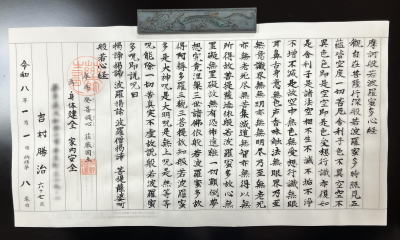 摩訶般若波羅蜜多心経
観自在菩薩行深般若波羅蜜多時照見五
蘊皆空度一切苦厄舎利子色不異空空不
異色色即是空空即是色受想行識亦復如
是舎利子是諸法空相不生不滅不垢不浄
不増不減是故空中無色無受想行識無眼
耳鼻舌身意無色声香味触法無眼界乃至
無意識界無無明亦無無明尽乃至無老死
亦無老死尽無苦集滅道無智亦無得以無
所得故菩提薩埵依般若波羅蜜多故心無
罣礙無罣礙故無有恐怖遠離一切顛倒夢
想究竟涅槃三世諸仏依般若波羅蜜多故
得阿耨多羅三藐三菩提故知般若波羅蜜
多是大神呪是大明呪是無上呪是無等等
呪能除一切苦真実不虚故説般若波羅蜜
多呪即説呪曰
羯諦羯諦 波羅羯諦 波羅僧羯諦 菩提薩婆訶
般若心経
発菩提心 荘厳国土
身体健全 家内安全
吉村勝治 六十七才
令和八年一月一日 第八巻目